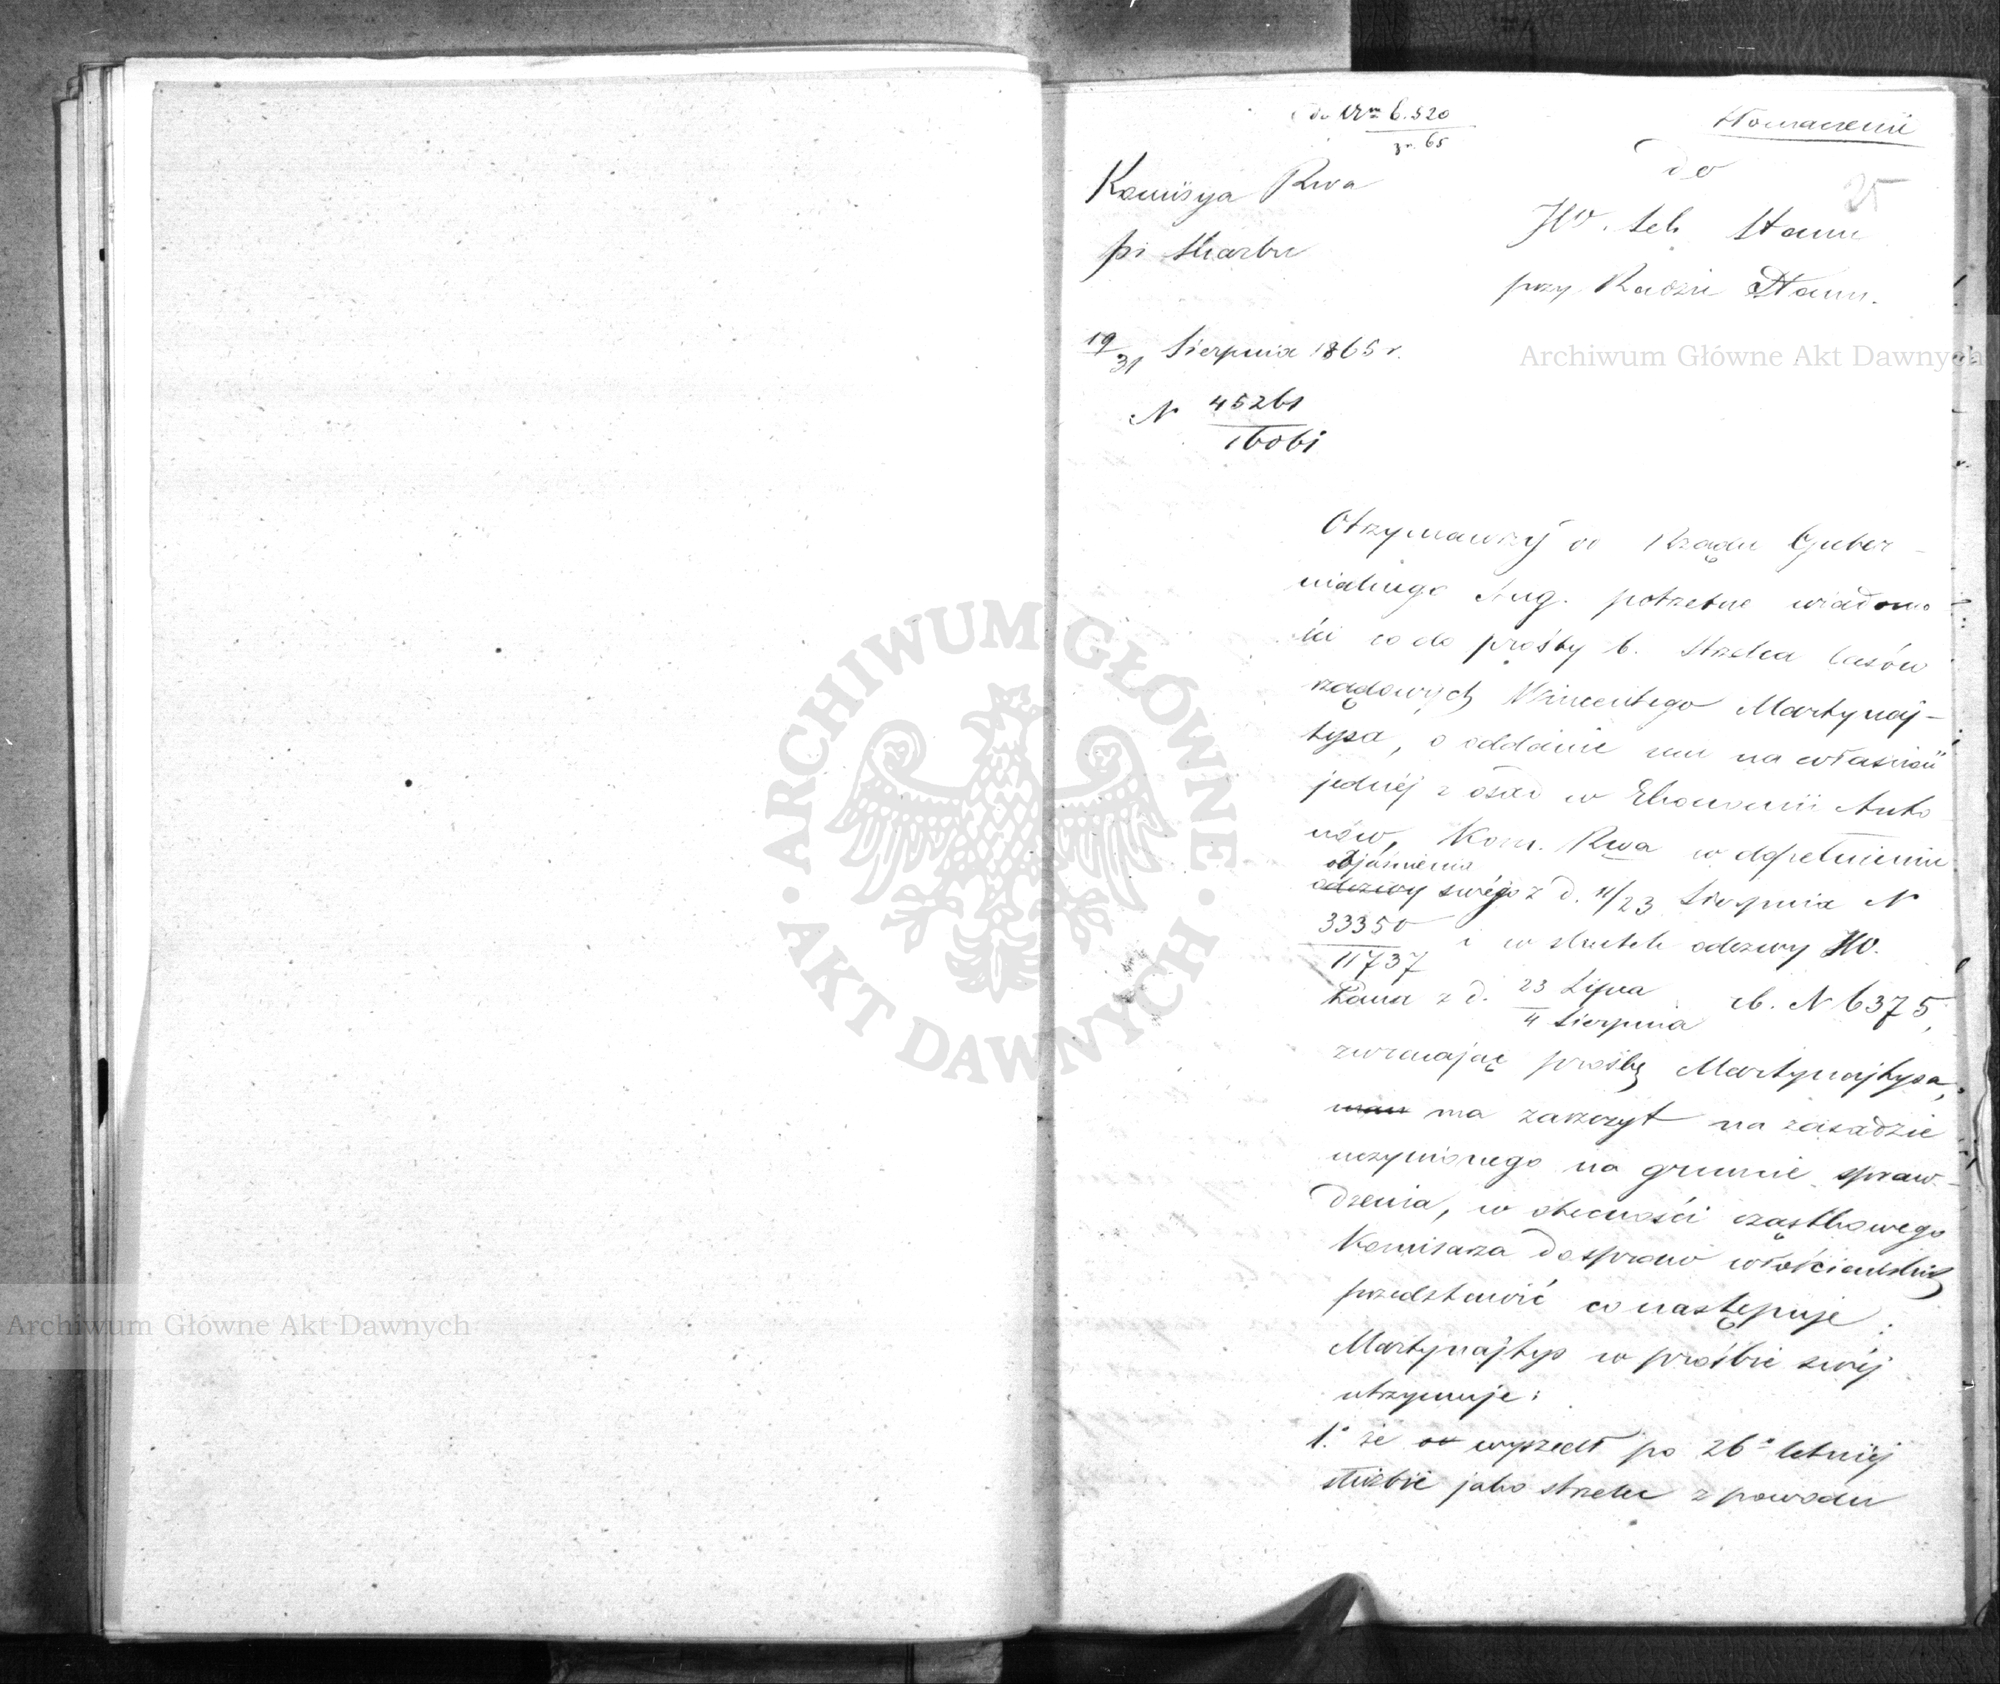 do Nru 6.520
z r. 65
Tłomaczenie
do
25
Komisya Rwa
pi Skarbu
JW. Sek. Stanu
przy Radzie Stanu.
19/31 Sierpnia 1865 r.
N 45261
16061
Otrzymawszy od Rządu Guber-
nialnego Aug. potrzebne wiadomo-
ści co do prośby b. Strzelca lasów
rządowych Wincentego Martynaj-
tysa, o oddanie mu na własność
jednéj z osad w Ekonomii Anto-
nów, Kom. Rwa w dopełnieniu
objaśnienia
odezwy swégo z d. 11/23 Sierpnia N
33350
11737 i w skutek odezwy JW.
Pana z d. 23 Lipca
4 Sierpnia rb. N 6375,
zwracając prośbę Martynajtysa,
mam ma zaszczyt na zasadzie
uczynionego na gruncie spraw-
dzenia, w obecności cząstkowego
Komisarza do spraw włościańskich
przedstawić co następuje:
Martynajtys w prośbie swéj
utrzymuje:
1.° że on wyszedł po 26° letniéj
służbie jako strzelec z powodu
Archiwum Główne Akt Dawnych
Archiwum Główne Akt Dawnych
ARCHIWUM GŁÓWNE
AKT DAWNYCH